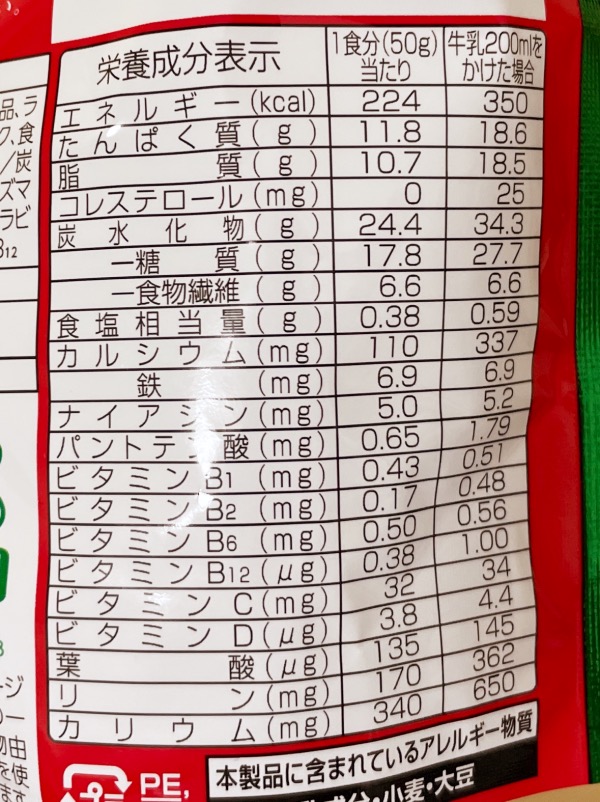 栄養成分表示 1食分(50g)当たり 牛乳200mlをかけた場合
エネルギー(kcal) 224 350
たんぱく質(g) 11.8 18.6
脂質(g) 10.7 18.5
コレステロール(mg) 0 25
炭水化物(g) 24.4 34.3
ー糖質(g) 17.8 27.7
ー食物繊維(g) 6.6 6.6
食塩相当量(g) 0.38 0.59
カルシウム(mg) 110 337
鉄(mg) 6.9 6.9
ナイアシン(mg) 5.0 5.2
パントテン酸(mg) 0.65 1.79
ビタミンB1(mg) 0.43 0.51
ビタミンB2(mg) 0.17 0.48
ビタミンB6(mg) 0.50 0.56
ビタミンB12(μg) 0.38 1.00
ビタミンC(mg) 32 34
ビタミンD(μg) 3.8 4.4
葉酸(μg) 135 145
リン(mg) 170 362
カリウム(mg) 340 650
本製品に含まれているアレルギー物質
成分・小麦・大豆
プラ PE,
品、ラ
ク、食
/炭
ズマ
ラビ
B12
ージ
の一
物由
を使
ます